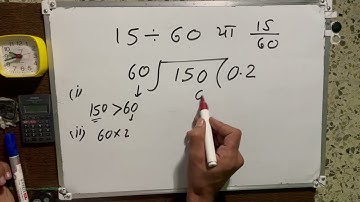 15 ÷ 60 या 15/60
60) 150 ( 0.2
6
(i)
150 > 60
(ii) 60 × 2